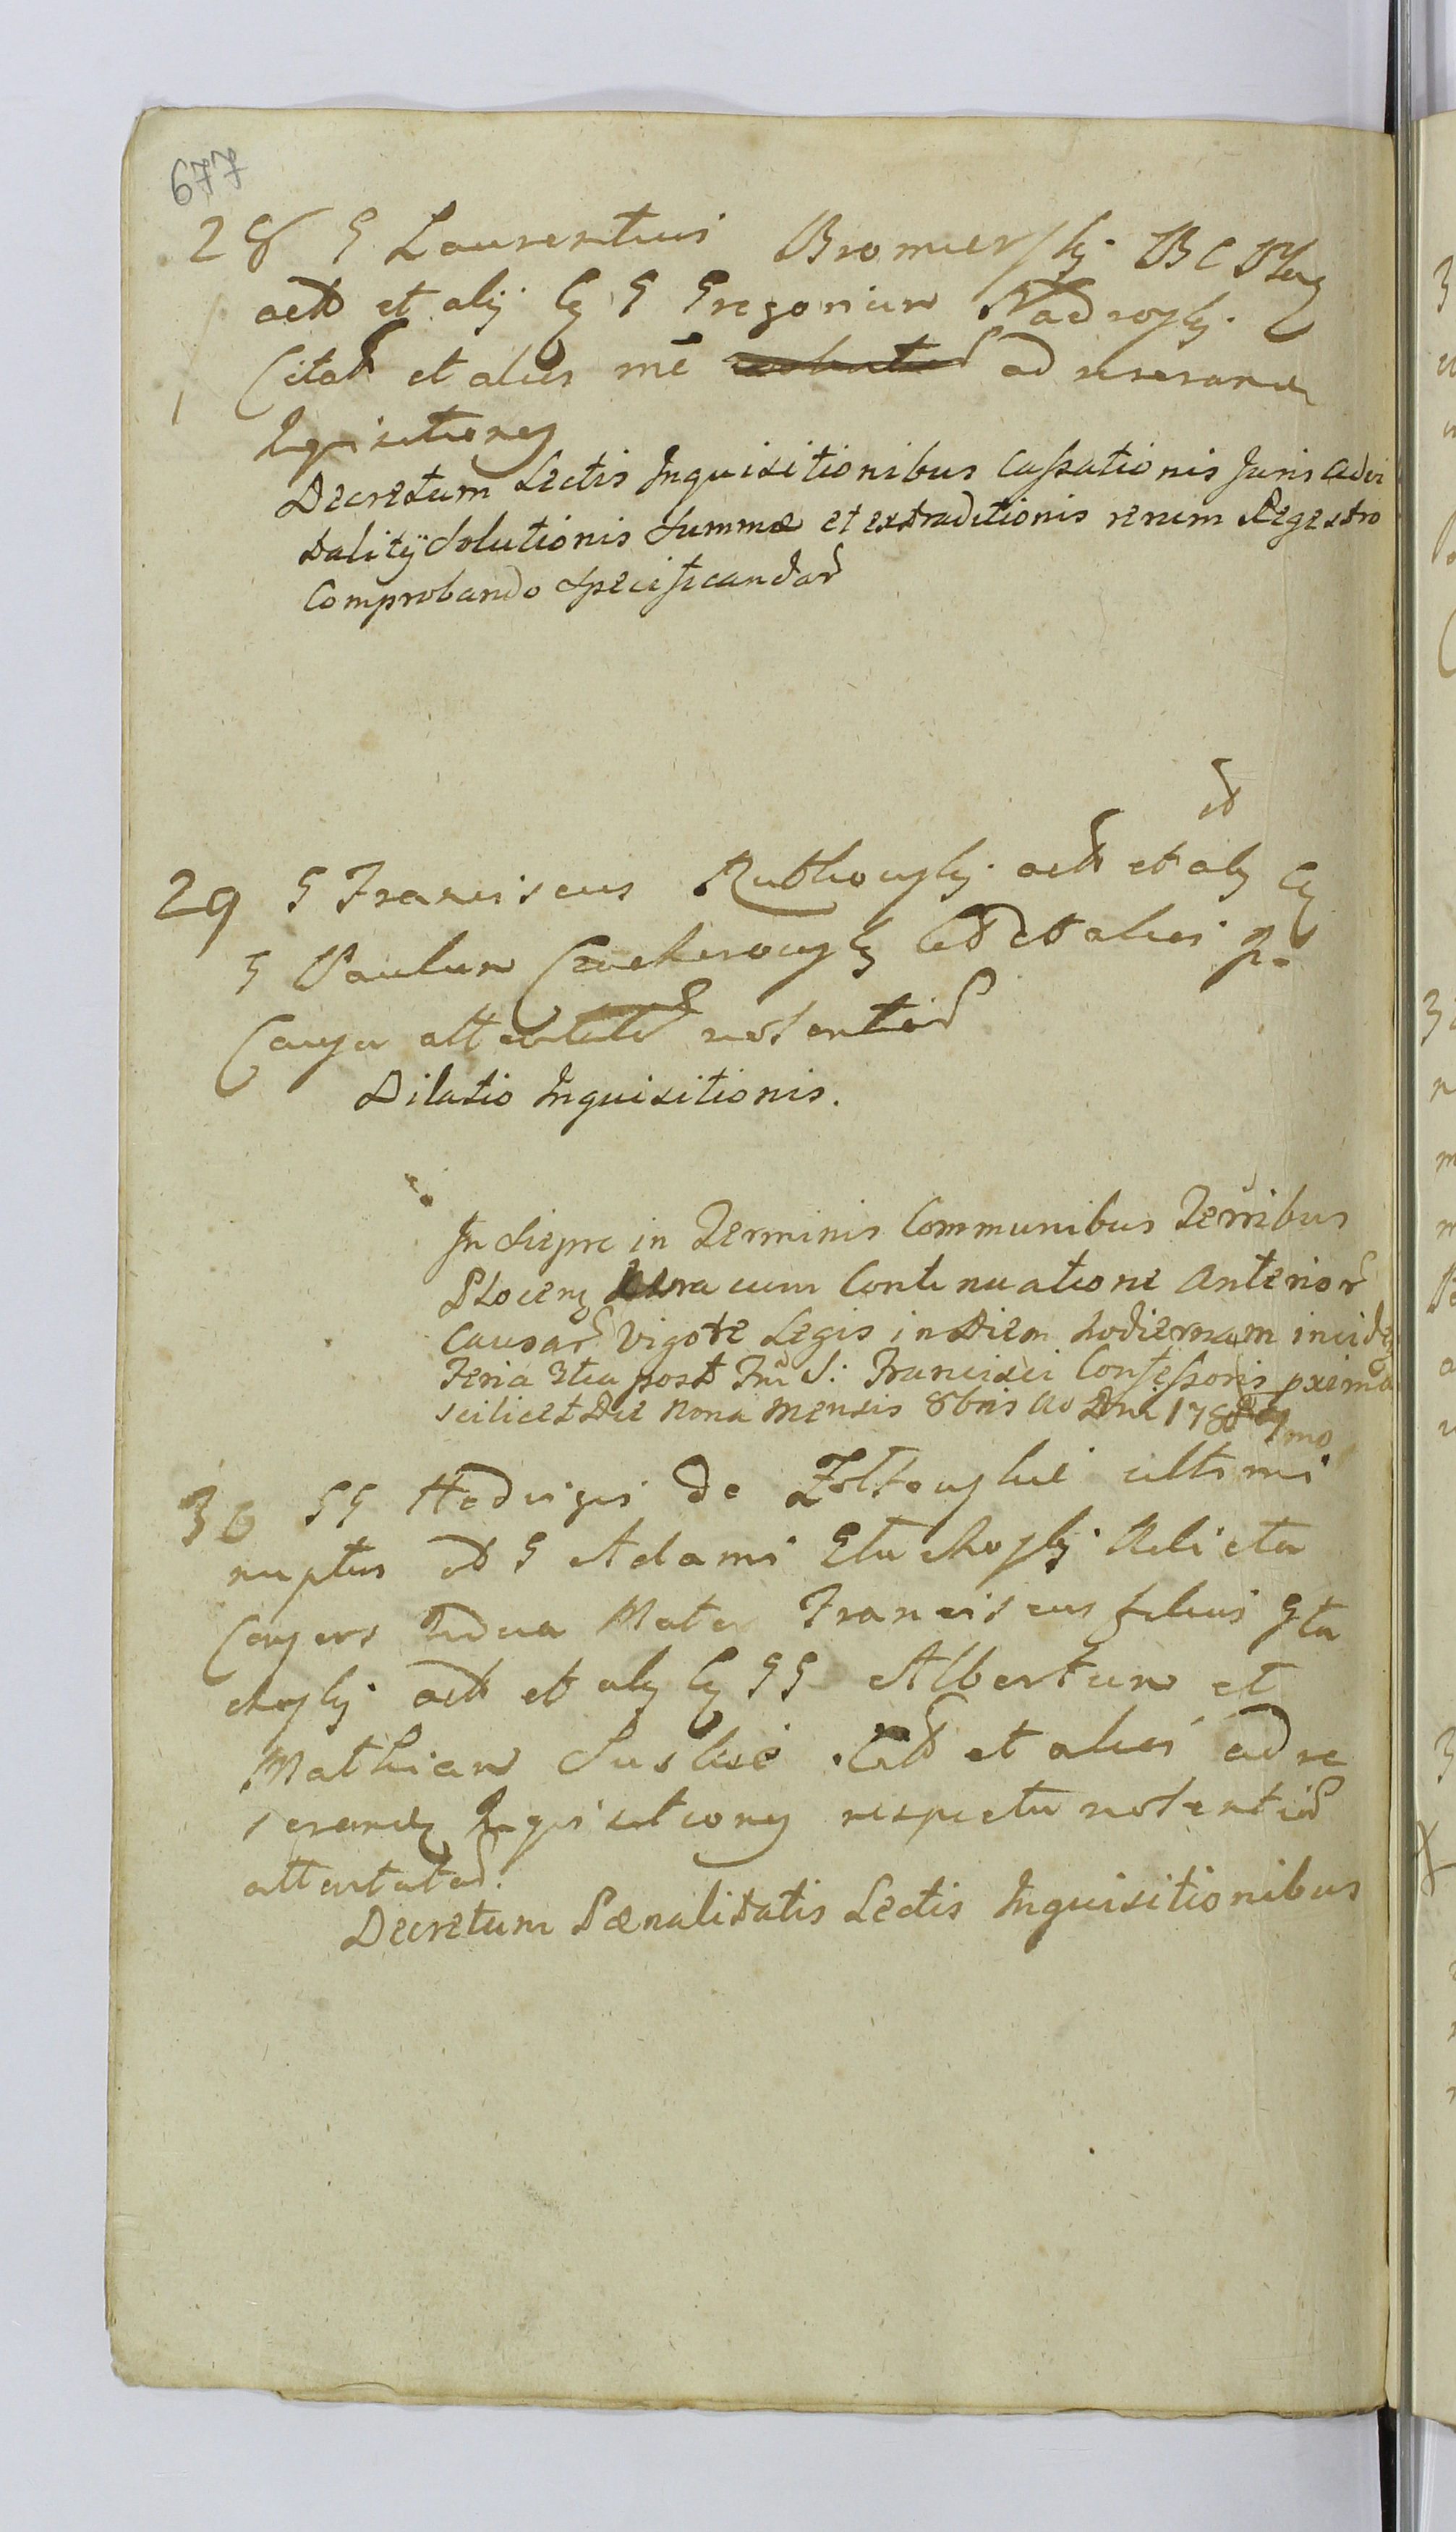 677
28 G Laurentius Bromiersky. B C
act et alij Cq G Gregorium Nadrosky.
Citat et alios me ad reserand
Inquisitiones
Decretum Lectis Inquisitionibus Cassationis Juris advi
talitij Solutionis Summæ et extraditionis rerum Regestro
Comprobando Specificandar
et
29 G Franciscus Rutkowsky. act et alij Cq
G Paulum Cit et alios p.
Causa attentat violentiar
Dilatio Inquisitionis.
In Sierpc in Terminis Communibus Terribus
Plocen cum Continuatione Anterior
Causar Vigore Legis in Diem hodiernam inciden
Feria 3tia post Fm S: Francisci Confessoris pxima
scilicet Die Nona Mensis 8bris Ao Dni 178 mo
30 GG Hedvigis de Zoltowskie ultimi
nuptus et G Adami Gluchosky. Relicta
Consors Vidua Mater Franciscus filius Glu
chosky act et alij Cq GG Albertum et
Mathiam Suskie. Cit et alios ad re
serand Inquisitiones respectu violentiar
attentatar.
Decretum Pænalitatis Lectis Inquisitionibus